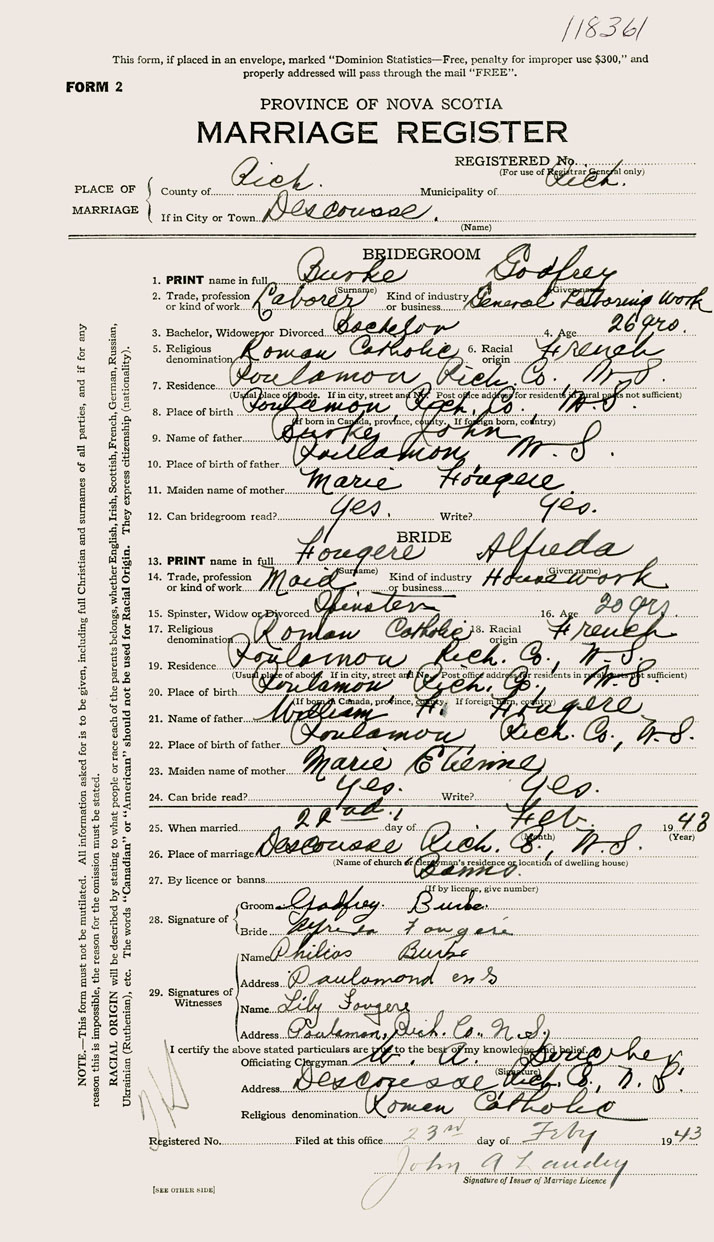 118361
This form, if placed in an envelope, marked "Dominion Statistics—Free, penalty for improper use $300," and
properly addressed will pass through the mail "FREE".
FORM 2
PROVINCE OF NOVA SCOTIA
MARRIAGE REGISTER
REGISTERED No.
(For use of Registrar General only)
PLACE OF MARRIAGE
County of Rich. Municipality of Rich.
If in City or Town Descousse.
(Name)
BRIDEGROOM
1. PRINT name in full Burke Godfrey
(Surname) (Given name)
2. Trade, profession or kind of work Laborer Kind of industry or business General Laboring Work
3. Bachelor, Widower or Divorced Bachelor 4. Age 26 yrs.
5. Religious denomination Roman Catholic 6. Racial origin French
7. Residence Poulamon Rich. Co. N.S.
(Usual place of abode. If in city, street and No. Post office address for residents in rural parts not sufficient)
8. Place of birth Poulamon Rich. Co. N.S.
(If born in Canada, province, county. If foreign born, country)
9. Name of father Burke, John
10. Place of birth of father Poulamon, N.S.
11. Maiden name of mother Marie Fougere
12. Can bridegroom read? Yes. Write? Yes.
BRIDE
13. PRINT name in full Fougere Alfreda
(Surname) (Given name)
14. Trade, profession or kind of work Maid Kind of industry or business Housework
15. Spinster, Widow or Divorced Spinster 16. Age 20 yrs.
17. Religious denomination Roman Catholic 18. Racial origin French
19. Residence Poulamon Rich. Co., N.S.
(Usual place of abode. If in city, street and No. Post office address for residents in rural parts not sufficient)
20. Place of birth Poulamon Rich. Co., N.S.
(If born in Canada, province, county. If foreign born, country)
21. Name of father William H. Fougere
22. Place of birth of father Poulamon Rich. Co., N.S.
23. Maiden name of mother Marie Etienne
24. Can bride read? Yes. Write? Yes.
25. When married 22nd. day of Feb. 1943
(Month) (Year)
26. Place of marriage Descousse Rich. Co., N.S.
(Name of church or clergyman's residence or location of dwelling house)
27. By licence or banns Banns.
(If by licence, give number)
28. Signature of
Groom Godfrey Burke
Bride Alfreda Fougere
29. Signatures of Witnesses
Name Philias Burke
Address Paulamond
Name Lily Fougere
Address Poulamon, Rich. Co., N.S.
I certify the above stated particulars are true to the best of my knowledge and belief.
Officiating Clergyman
(Signature)
Address Rich. Co., N.S.
Religious denomination Roman Catholic
Registered No. Filed at this office 23rd day of Feby 1943
John A Landry
Signature of Issuer of Marriage Licence
[SEE OTHER SIDE]
NOTE.—This form must not be mutilated. All information asked for is to be given, including full Christian and surnames of all parties, and if for any
reason this is impossible, the reason for the omission must be stated.
RACIAL ORIGIN will be described by stating to what people or race each of the parents belongs, whether English, Irish, Scottish, French, German, Russian,
Ukrainian (Ruthenian), etc. The words "Canadian" or "American" should not be used for Racial Origin. They express citizenship (nationality).